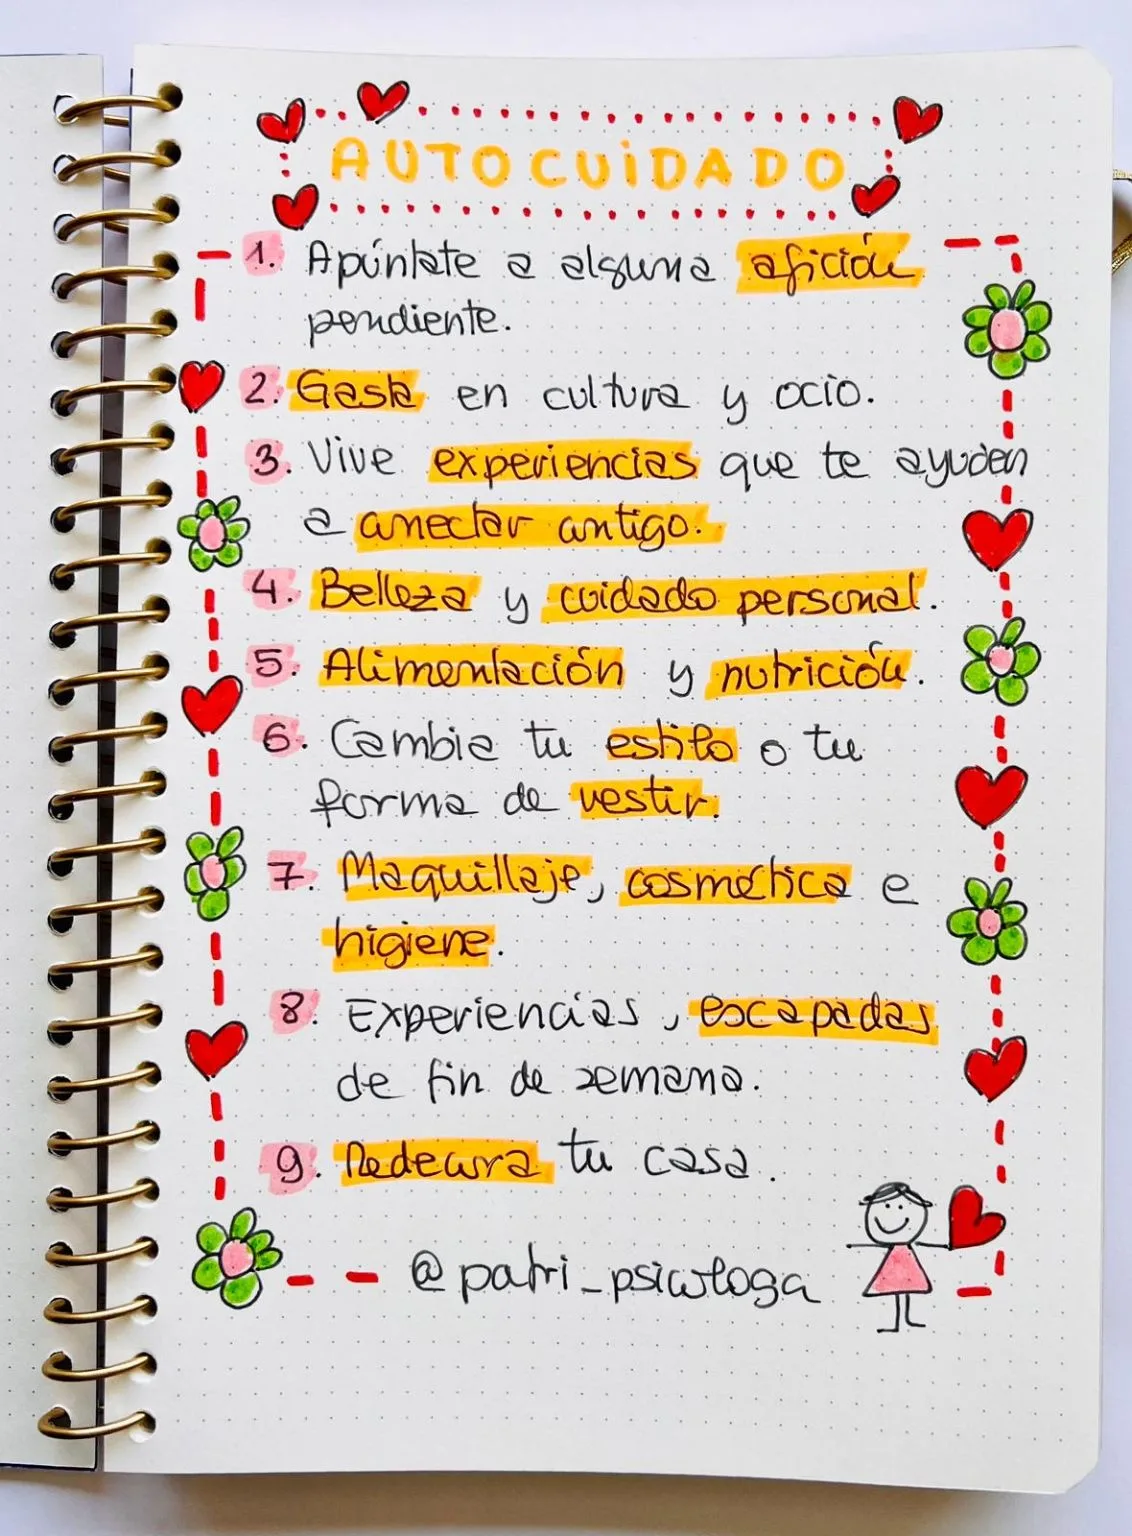 AUTOCUiDADO
1. Apúntate a alguna afición
pendiente.
2. Gasta en cultura y ocio.
3. Vive experiencias que te ayuden
a conectar contigo.
4. Belleza y cuidado personal.
5. Alimentación y nutrición.
6. Cambia tu estilo o tu
forma de vestir.
7. Maquillaje, cosmética e
higiene.
8. Experiencias, escapadas
de fin de semana.
9. Redecora tu casa.
@patri_psicologa